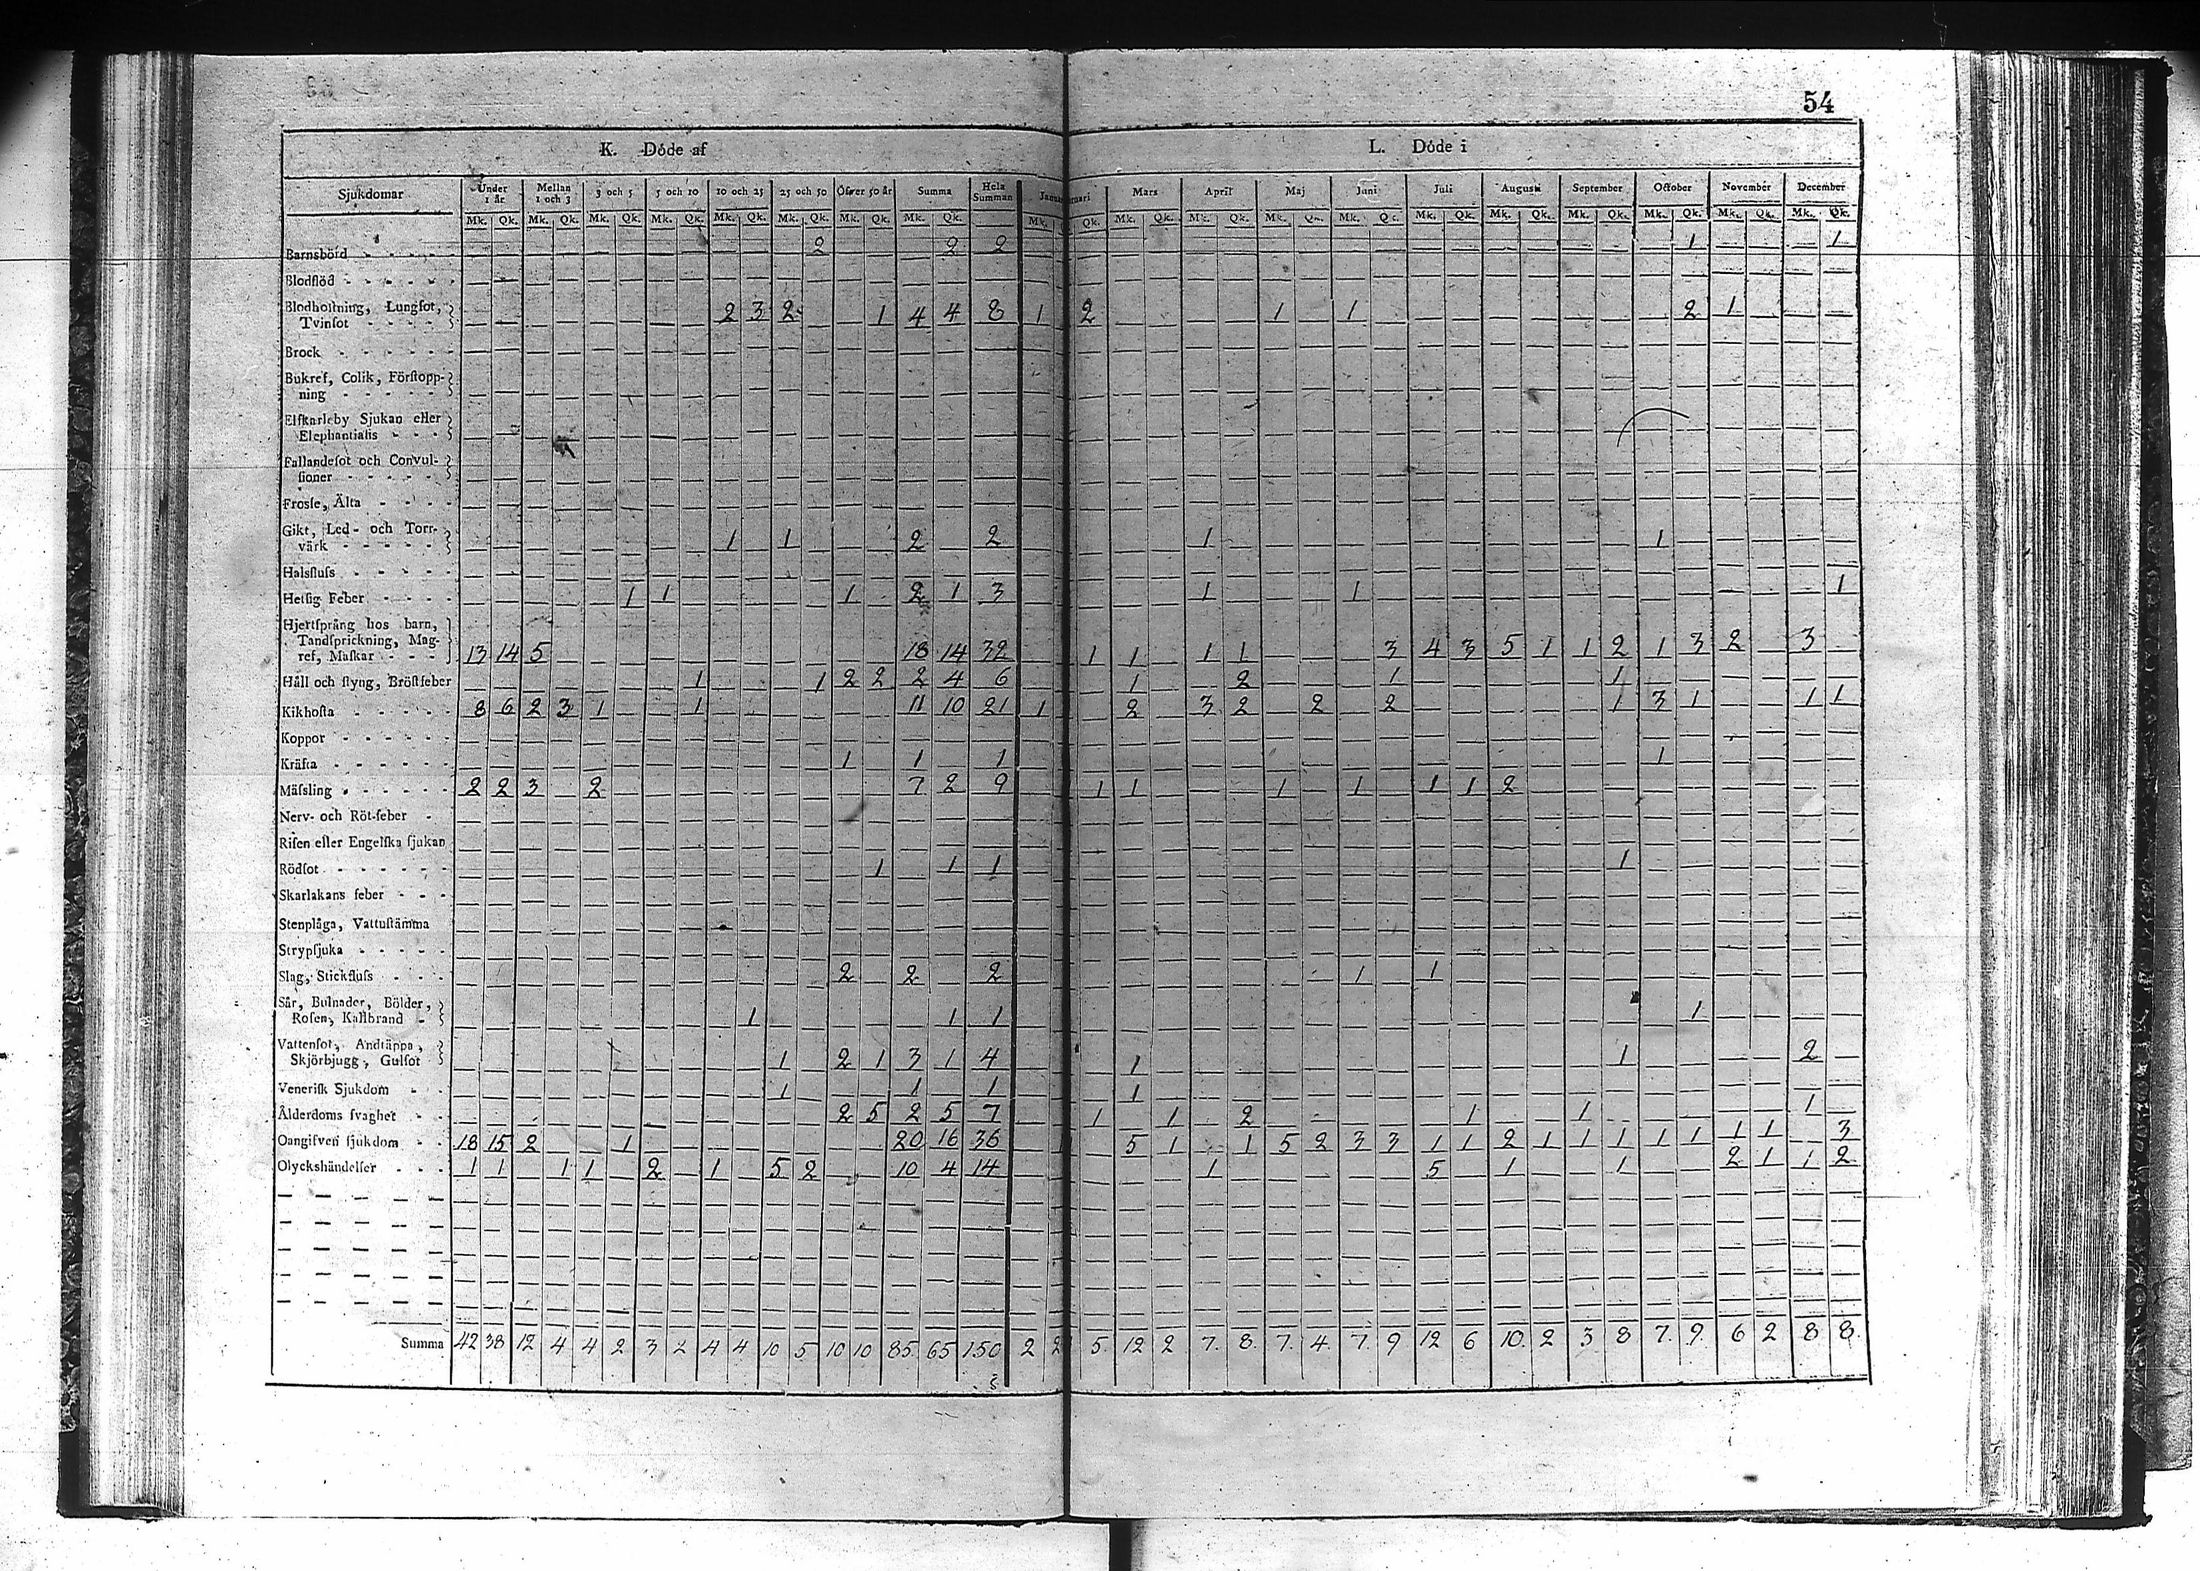 54
K. Döde af
L. Döde i
Sjukdomar Under 1 år Mellan 1 och 3 3 och 5 5 och 10 10 och 25 25 och 50 Öfver 50 år Summa Hela Summan Januari Mars April Maj Juni Juli Augusti September October November December
Mk. Qk. Mk. Qk. Mk. Qk. Mk. Qk. Mk. Qk. Mk. Qk. Mk. Qk. Mk. Qk. Mk. Qk. Mk. Qk. Mk. Qk. Mk. Qk. Mk. Qk. Mk. Qk. Mk. Qk. Mk. Qk. Mk. Qk. Mk. Qk. Mk. Qk.
Barnsbörd 2 2 2 1 1
Blodflöd
Blodhostning, Lungsot,
Tvinsot 2 3 2 1 4 4 8 1 2 1 1 2 1
Brock
Bukref, Colik, Förstopp-
ning
Elfkarleby Sjukan eller
Elephantiasis
Fallandesot och Convul-
sioner
Frosse, Älta
Gikt, Led- och Torr-
värk 1 1 2 2 1 1
Halsfluss
Hetsig Feber 1 1 1 2 1 3 1 1 1
Hjertsprång hos barn,
Tandsprickning, Mag-
ref, Maskar 13 14 5 18 14 32 1 1 1 1 3 4 3 5 1 1 2 1 3 2 3
Håll och styng, Bröstfeber 1 1 2 2 2 4 6 1 2 1 1
Kikhosta 8 6 2 3 1 1 11 10 21 1 2 3 2 2 2 1 3 1 1 1
Koppor
Kräfta 1 1 1 1
Mässling 2 2 3 2 7 2 9 1 1 1 1 1 1 2
Nerv- och Röt-feber
Risen eller Engelska sjukan
Rödsot 1 1 1 1
Skarlakans feber
Stenplåga, Vattustämma
Strypsjuka
Slag, Stickfluss 2 2 2 1 1
Sår, Bulnader, Bölder,
Rosen, Kallbrand 1 1 1 1
Vattensot, Andtäppa,
Skjörbjugg, Gulsot 1 2 1 3 1 4 1 1 2
Venerisk Sjukdom 1 1 1 1
Ålderdoms svaghet 2 5 2 5 7 1 1 2 1 1 1
Oangifven sjukdom 18 15 2 1 20 16 36 5 1 1 5 2 3 3 1 1 2 1 1 1 1 1 1 1 3
Olyckshändelser 1 1 1 1 2 1 5 2 10 4 14 1 5 1 1 2 1 1 2
Summa 42 38 12 4 4 2 3 2 4 4 10 5 10 10 85 65 150 2 2 5 12 2 7 8 7 4 7 9 12 6 10 2 3 8 7 9 6 2 8 8